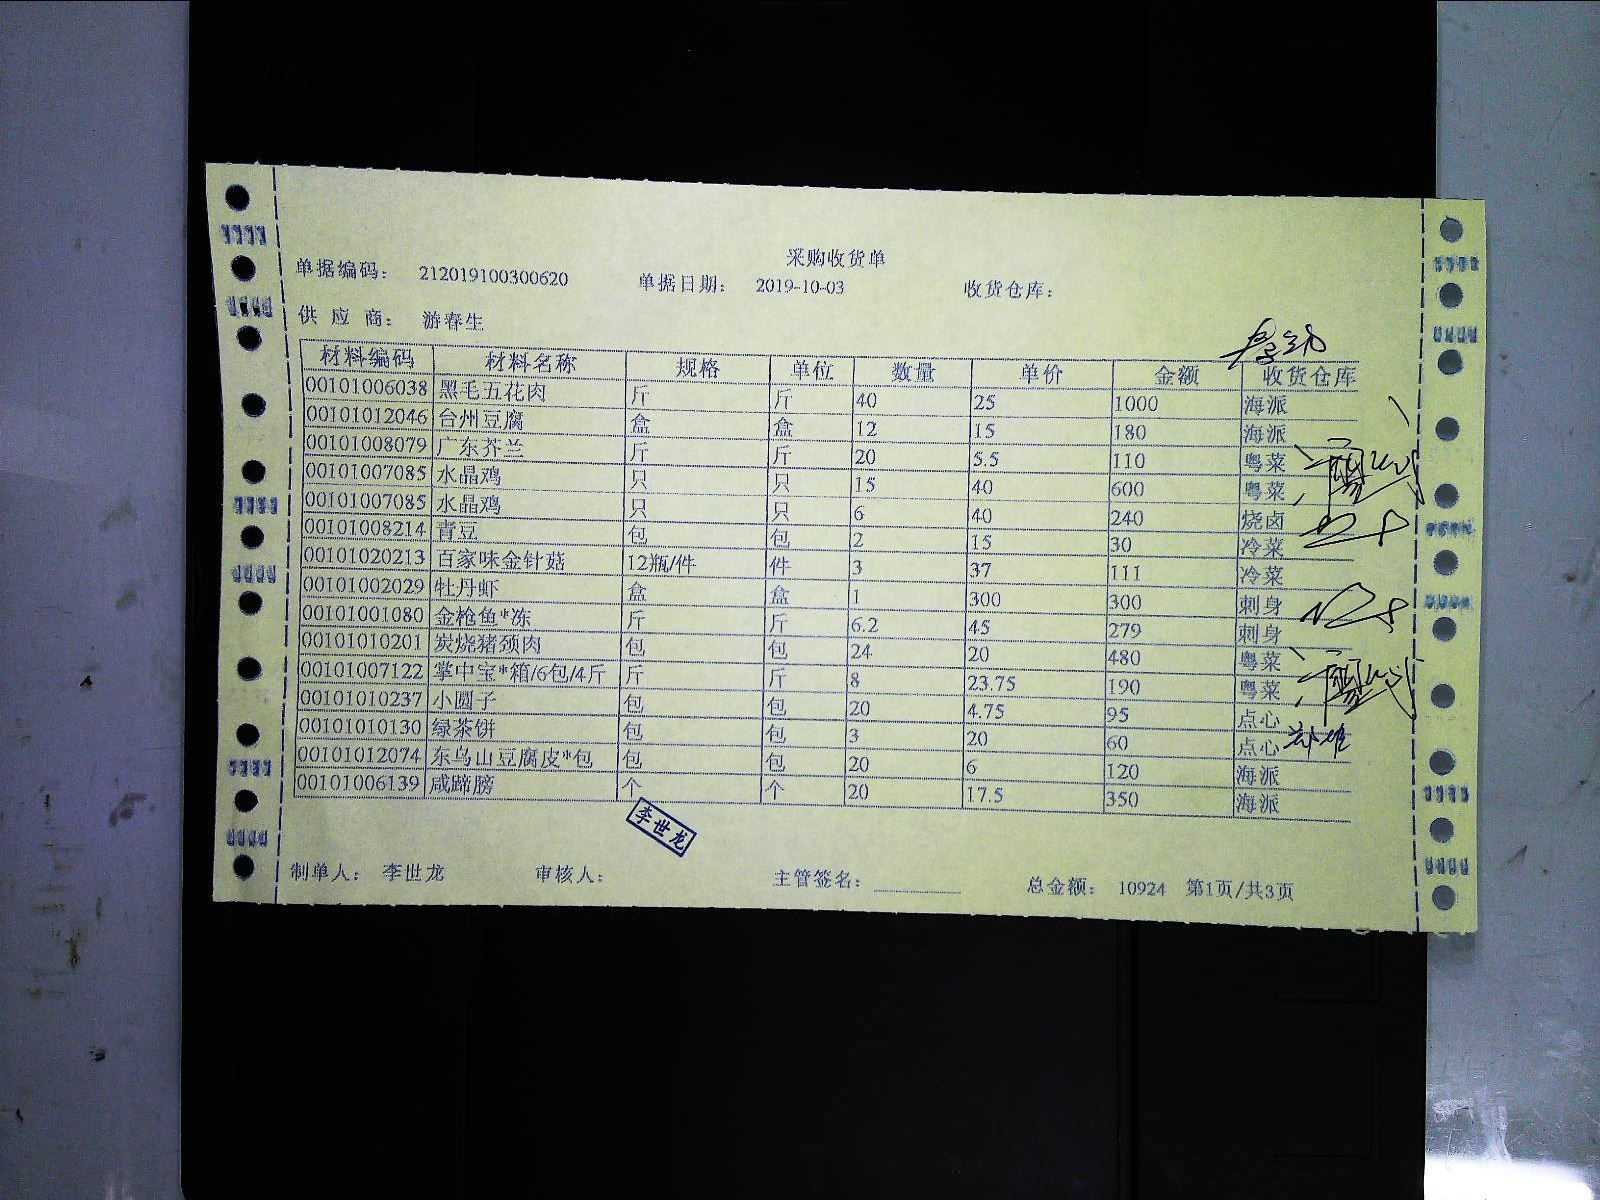 采购收货单
单据编码： 212019100300620 单据日期： 2019-10-03 收货仓库：
供 应 商： 游春生
材料编码 材料名称 规格 单位 数量 单价 金额 收货仓库
00101006038 黑毛五花肉 斤 斤 40 25 1000 海派
00101012046 台州豆腐 盒 盒 12 15 180 海派
00101008079 广东芥兰 斤 斤 20 5.5 110 粤菜
00101007085 水晶鸡 只 只 15 40 600 粤菜
00101007085 水晶鸡 只 只 6 40 240 烧卤
00101008214 青豆 包 包 2 15 30 冷菜
00101020213 百家味金针菇 12瓶/件 件 3 37 111 冷菜
00101002029 牡丹虾 盒 盒 1 300 300 刺身
00101001080 金枪鱼*冻 斤 斤 6.2 45 279 刺身
00101010201 炭烧猪颈肉 包 包 24 20 480 粤菜
00101007122 掌中宝*箱/6包/4斤 斤 斤 8 23.75 190 粤菜
00101010237 小圆子 包 包 20 4.75 95 点心
00101010130 绿茶饼 包 包 3 20 60 点心
00101012074 东乌山豆腐皮*包 包 包 20 6 120 海派
00101006139 咸蹄膀 个 个 20 17.5 350 海派
李世龙
制单人： 李世龙 审核人： 主管签名： 总金额： 10924 第1页/共3页